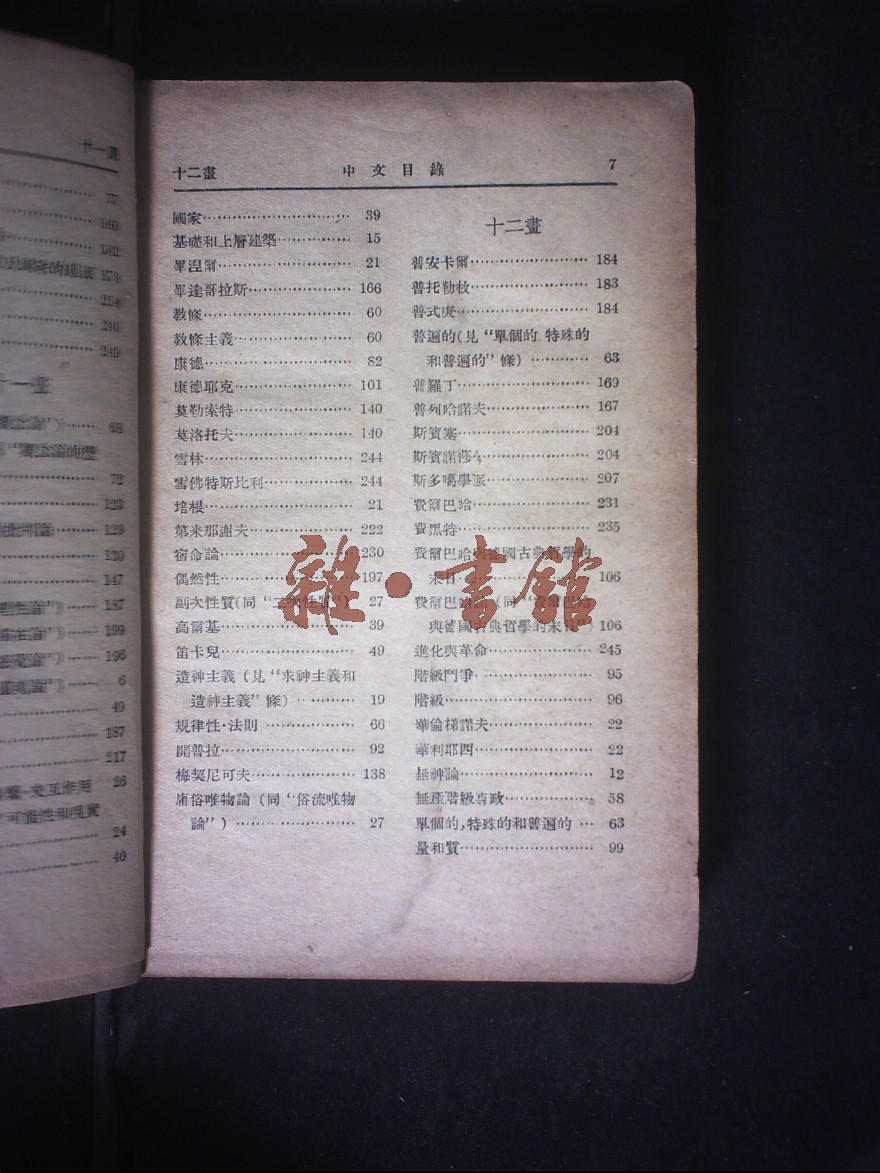 廿一畫
77
140
142
240
240
十一畫
68
72
123
129
130
147
187
199
196
6
49
187
217
交互作用 26
可能性和現實
24
40
十二畫 中文目錄 7
國家 39
基礎和上層建築 15
畢涅爾 21
畢達哥拉斯 166
教條 60
教條主義 60
康德 82
康德耶克 101
莫勒索特 140
莫洛托夫 140
雪林 244
雪佛特斯比利 244
培根 21
第米那謝夫 222
宿命論 230
偶然性 197
副次性質(同“二次性質”) 27
高爾基 39
笛卡兒 49
造神主義(見“求神主義和
造神主義”條) 19
規律性·法則 66
開普拉 92
梅契尼可夫 138
庸俗唯物論(同“俗流唯物
論”) 27
十二畫
普安卡爾 184
普托勒枚 183
普式庚 184
普遍的(見“單個的 特殊的
和普遍的”條) 63
普羅丁 169
普列哈諾夫 167
斯賓塞 204
斯賓諾莎 204
斯多噶學派 207
費爾巴哈 231
費黑特 235
費爾巴哈與德國古典哲學的
末日 106
費爾巴哈論(同“費爾巴哈
與德國古典哲學的末日”) 106
進化與革命 245
階級鬥爭 95
階級 96
華倫梯諾夫 22
華利耶西 22
無神論 12
無產階級專政 58
單個的,特殊的和普遍的 63
量和質 99
雜·書館